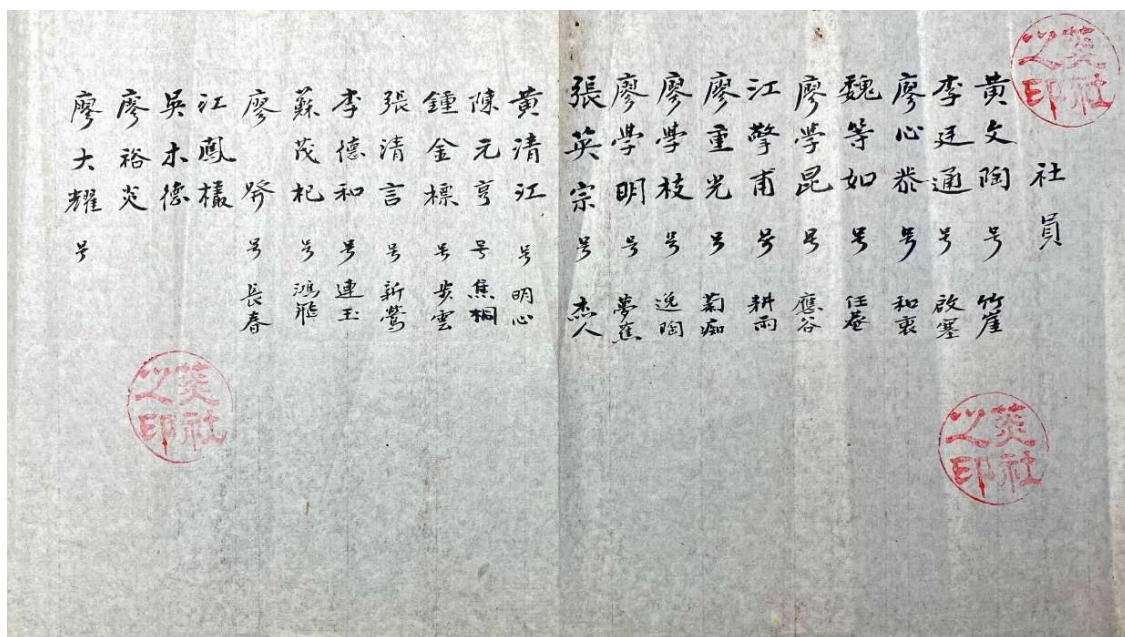 社員
黄文陶 号 竹崖
李廷通 号 啟塞
廖心恭 号 和衷
魏等如 号 任菴
廖学昆 号 應谷
江擎甫 号 耕雨
廖重光 号 菊痴
廖学枝 号 逸陶
廖学明 号 夢蕉
張英宗 号 杰人
黄清江 号 明心
陳元亨 号 焦桐
鍾金標 号 步雲
張清言 号 新鶯
李德和 号 連玉
蘇茂杞 号 鴻飛
廖發 号 長春
江鳳樣
吳木德
廖裕炎
廖大耀 号
菼社之印
菼社之印
菼社之印